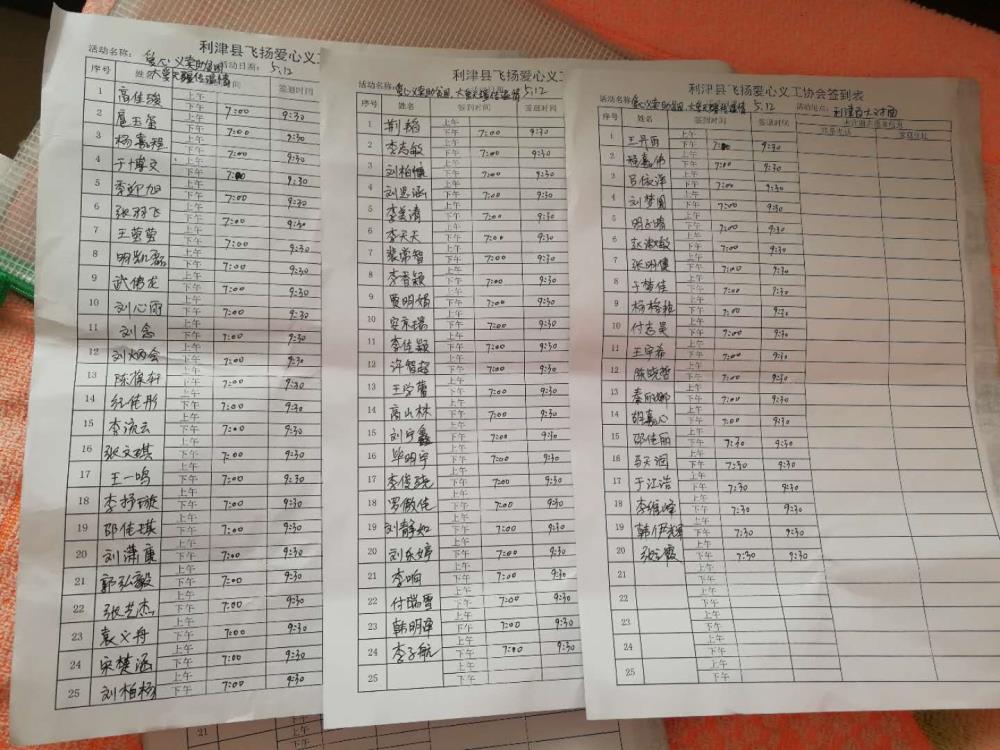 利津县飞扬爱心义工
活动名称：
活动日期：
5.12
序号
签退时间
1 上午
高佳骏 下午 7:00 9:30
2 上午
扈玉玺 下午 7:00 9:30
3 上午
杨嘉程 下午 7:00 9:30
4 上午
于博文 下午 7:00 9:30
5 上午
下午 7:00 9:30
6 上午
张羽飞 下午 7:00 9:30
7 上午
王莹莹 下午 7:00 9:30
8 上午
明凯磊 下午 7:00 9:30
9 上午
武伟龙 下午 7:00 9:30
10 上午
刘心雨 下午 7:00 9:30
11 上午
刘念 下午 7:00 9:30
12 上午
下午 7:00 9:30
13 上午
下午 7:00 9:30
14 上午
下午 7:00 9:30
15 上午
李流云 下午 7:00 9:30
16 上午
张文琪 下午 7:00 9:30
17 上午
王一鸣 下午 7:00 9:30
18 上午
李抒璇 下午 7:00 9:30
19 上午
邵佳琪 下午 7:00 9:30
20 上午
刘潇康 下午 7:00 9:30
21 上午
郭弘毅 下午 7:00 9:30
22 上午
张艺杰 下午 7:00 9:30
23 上午
袁义舟 下午 7:00 9:30
24 上午
宋楚涵 下午 7:00 9:30
25 上午
刘柏杨 下午 7:00 9:30
利津县飞扬爱心义工
活动名称
5.12
序号 姓名 签到时间 签退时间
1 荆韬 上午
下午 7:00 9:30
2 李志敏 上午
下午 7:00 9:30
3 刘柏慎 上午
下午 7:00 9:30
4 刘思涵 上午
下午 7:00 9:30
5 上午
下午 7:00 9:30
6 李天天 上午
下午 7:00 9:30
7 裴常智 上午
下午 7:00 9:30
8 李香颖 上午
下午 7:00 9:30
9 贾明娟 上午
下午 7:00 9:30
10 安永瑞 上午
下午 7:00 9:30
11 李佳颖 上午
下午 7:00 9:30
12 许智超 上午
下午 7:00 9:30
13 王学蕾 上午
下午 7:00 9:30
14 高山林 上午
下午 7:00 9:30
15 刘宁鑫 上午
下午 7:00 9:30
16 毕明宇 上午
下午 7:00 9:30
17 李俊骁 上午
下午 7:00 9:30
18 罗傲佳 上午
下午 7:00 9:30
19 刘静如 上午
下午 7:00 9:30
20 上午
下午 7:00 9:30
21 李响 上午
下午 7:00 9:30
22 付瑞雪 上午
下午 7:00 9:30
23 韩明泽 上午
下午 7:00 9:30
24 李子航 上午
下午 7:00 9:30
25 上午
下午
利津县飞扬爱心义工协会签到表
活动名称
5.12
活动地点：
序号 姓名 签到时间 签退时间
1 王丹丽 上午
下午 7:00 9:30
2 上午
下午 7:00 9:30
3 吕依洋 上午
下午 7:00 9:30
4 刘梦圆 上午
下午 7:00 9:30
5 明子靖 上午
下午 7:00 9:30
6 赵淑敏 上午
下午 7:00 9:30
7 张明健 上午
下午 7:00 9:30
8 于梦佳 上午
下午 7:00 9:30
9 上午
下午 7:00 9:30
10 付志昊 上午
下午 7:00 9:30
11 王宇希 上午
下午 7:00 9:30
12 陈晓哲 上午
下午 7:00 9:30
13 秦丽娜 上午
下午 7:00 9:30
14 胡嘉心 上午
下午 7:00 9:30
15 邵佳丽 上午
下午 7:30 9:30
16 马天润 上午
下午 7:30 9:30
17 于江浩 上午
下午 7:30 9:30
18 李维峰 上午
下午 7:30 9:30
19 上午
下午 7:30 9:30
20 上午
下午 7:30 9:30
21 上午
下午
22 上午
下午
23 上午
下午
24 上午
下午
25 上午
下午
21 上午
下午
上午